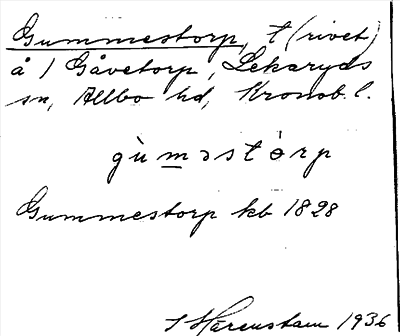 Gummestorp, t (rivet)
å / Gåvetorp, Lekaryds
sn, Allbo hd, Kronob. l.
gùməstòrp
Gummestorp kb 1828
Härenstam 1936